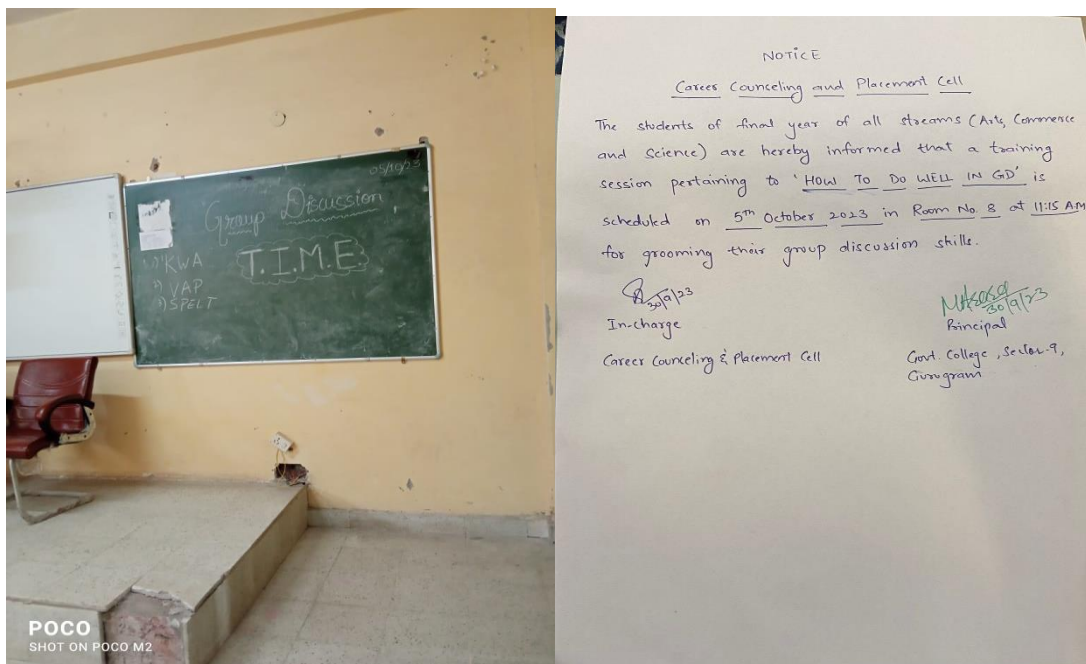 05/10/23
Group Discussion
T.I.M.E.
1) KWA
2) VAP
3) SPELT
POCO
SHOT ON POCO M2
NOTICE
Career Counseling and Placement Cell
The students of final year of all streams (Arts, Commerce
and Science) are hereby informed that a training
session pertaining to 'HOW TO DO WELL IN GD' is
scheduled on 5th October 2023 in Room No. 8 at 11:15 AM
for grooming their group discussion skills.
30/9/23
In-charge
Career Counceling & Placement Cell
30/9/23
Principal
Govt. College, Sector-9,
Gurugram